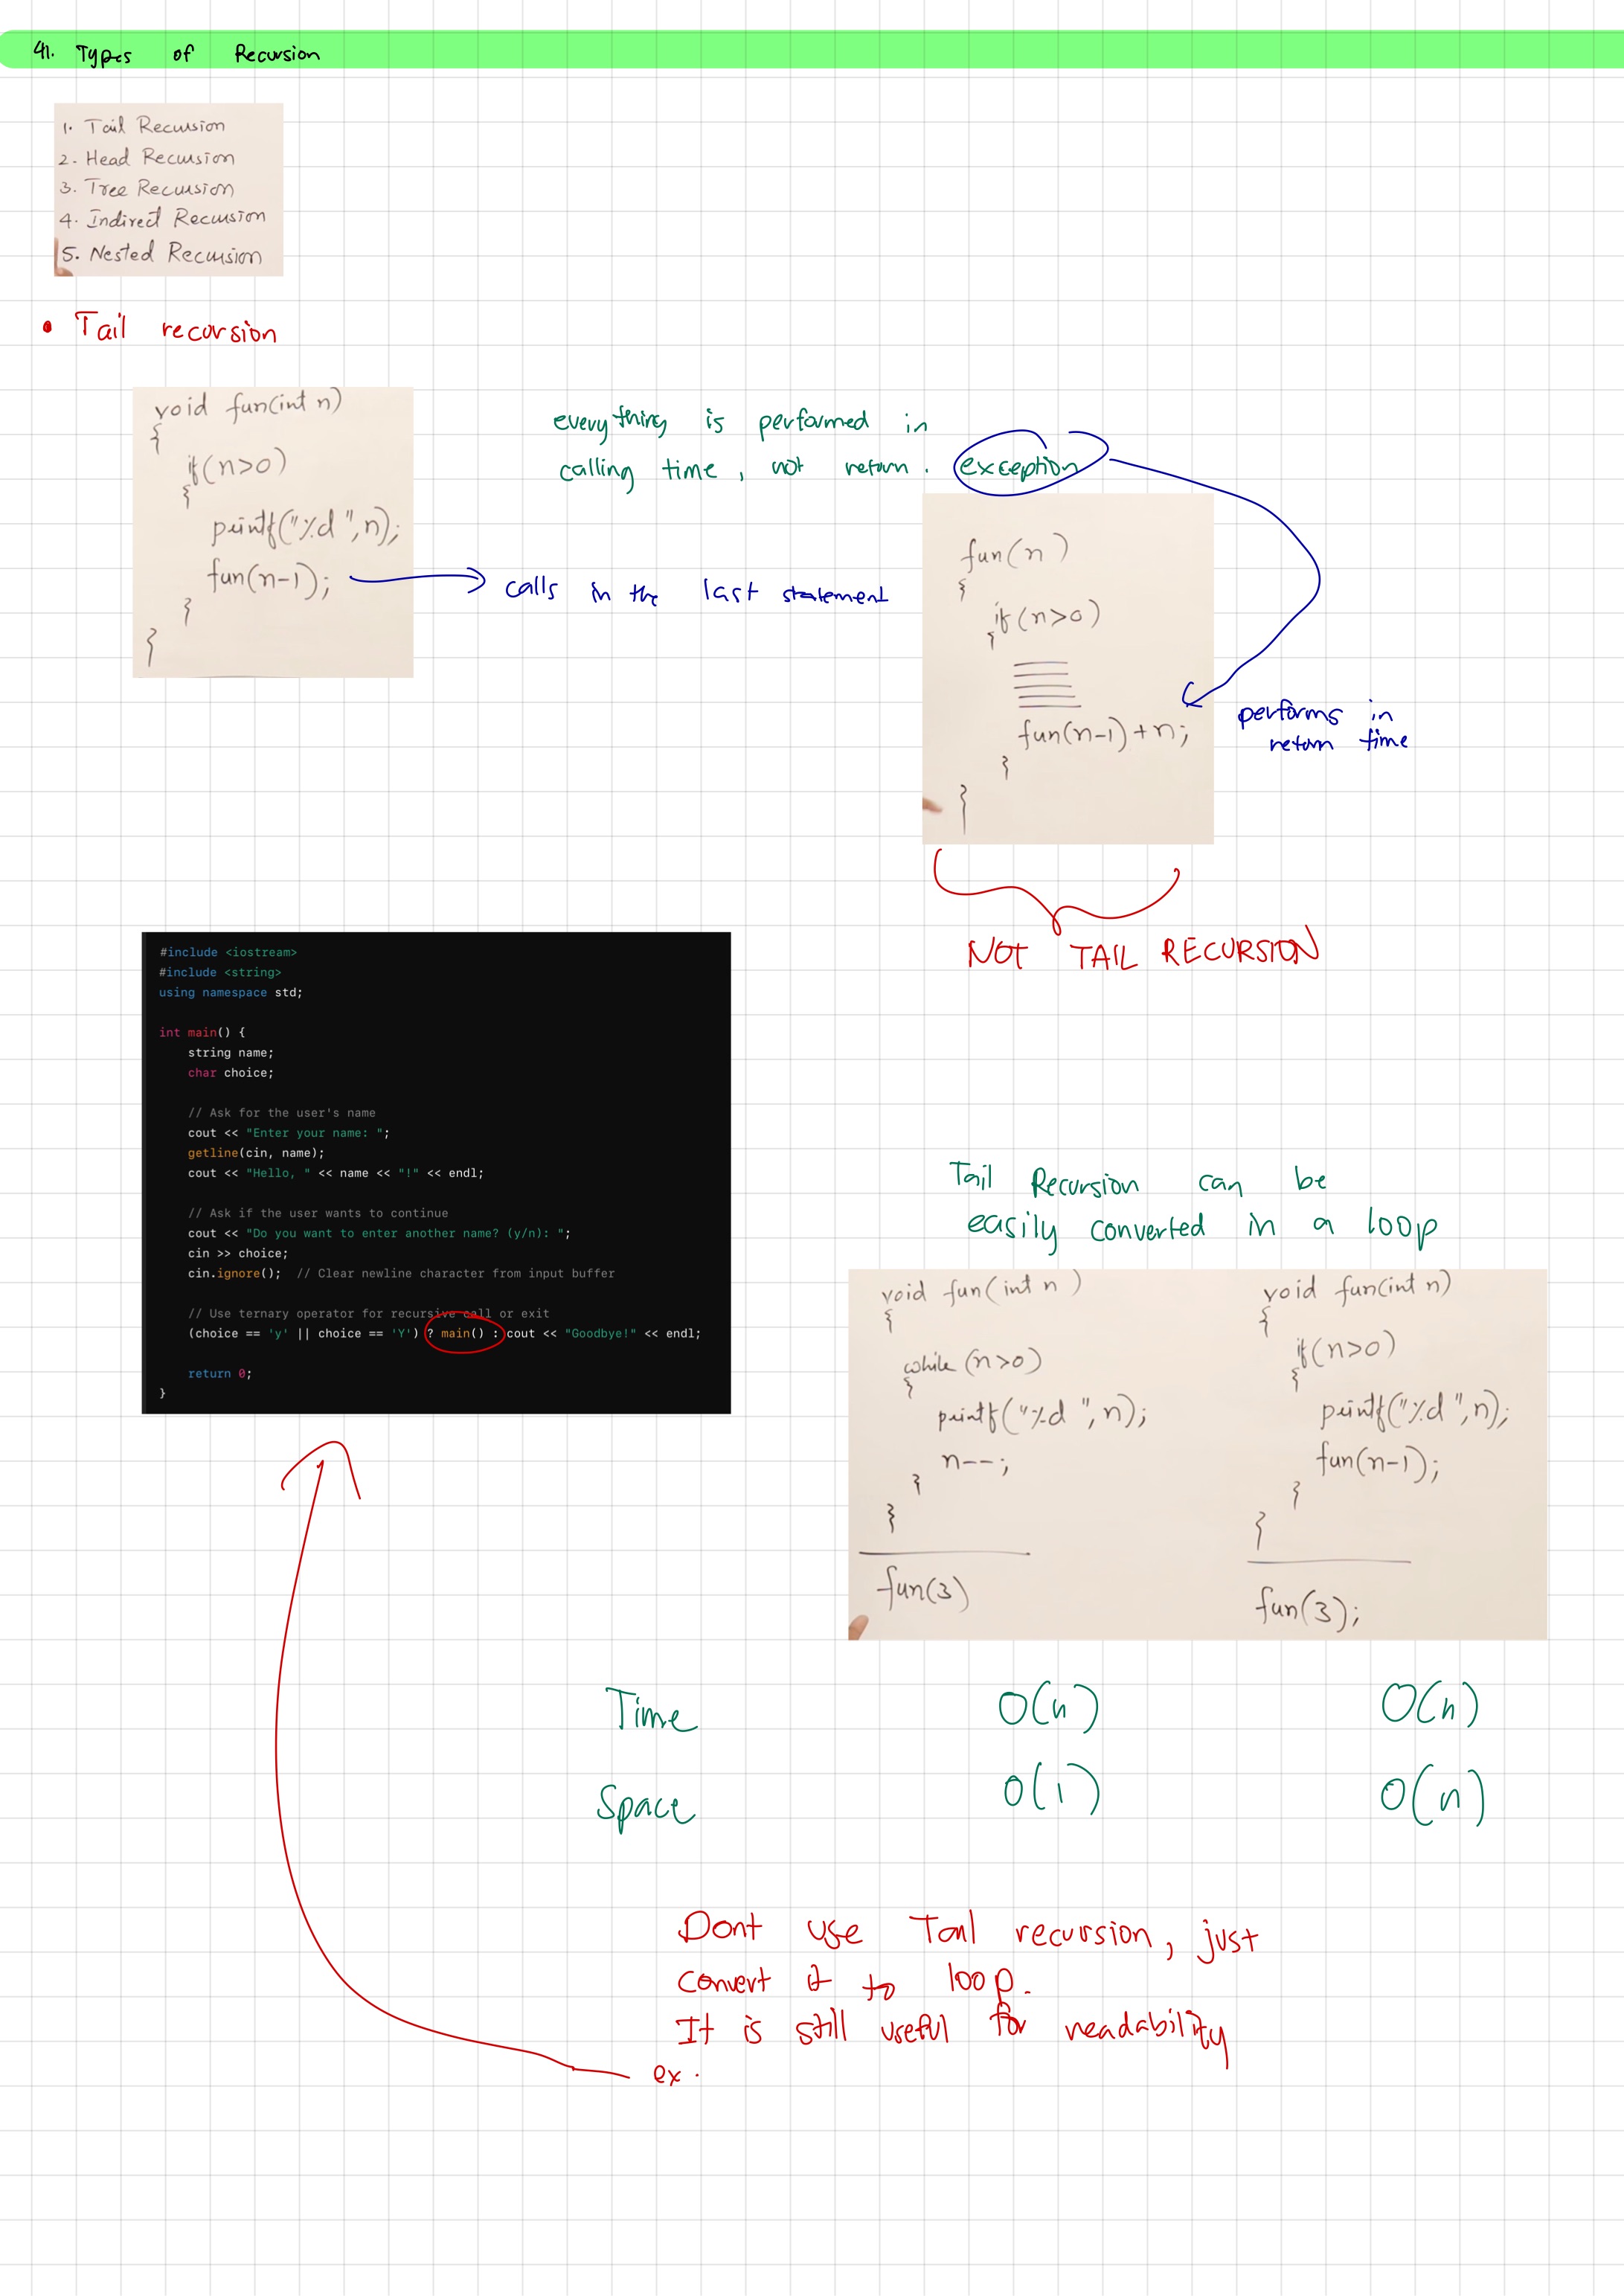 41. Types of Recursion
1. Tail Recursion
2. Head Recursion
3. Tree Recursion
4. Indirect Recursion
5. Nested Recursion
• Tail recursion
void fun(int n)
{
if(n>0)
{
printf("%d ",n);
fun(n-1);
}
}
calls in the last statement
everything is performed in
calling time, not return. exception
fun(n)
{
if(n>0)
{
fun(n-1)+n;
}
}
performs in
return time
NOT TAIL RECURSION
#include <iostream>
#include <string>
using namespace std;
int main() {
string name;
char choice;
// Ask for the user's name
cout << "Enter your name: ";
getline(cin, name);
cout << "Hello, " << name << "!" << endl;
// Ask if the user wants to continue
cout << "Do you want to enter another name? (y/n): ";
cin >> choice;
cin.ignore();  // Clear newline character from input buffer
// Use ternary operator for recursive call or exit
(choice == 'y' || choice == 'Y') ? main() : cout << "Goodbye!" << endl;
return 0;
}
Tail Recursion can be
easily converted in a loop
void fun(int n)
{
while(n>0)
{
printf("%d ",n);
n--;
}
}
fun(3)
void fun(int n)
{
if(n>0)
{
printf("%d ",n);
fun(n-1);
}
}
fun(3);
Time O(n) O(n)
Space O(1) O(n)
Dont use Tail recursion, just
convert it to loop.
It is still useful for readability
ex.